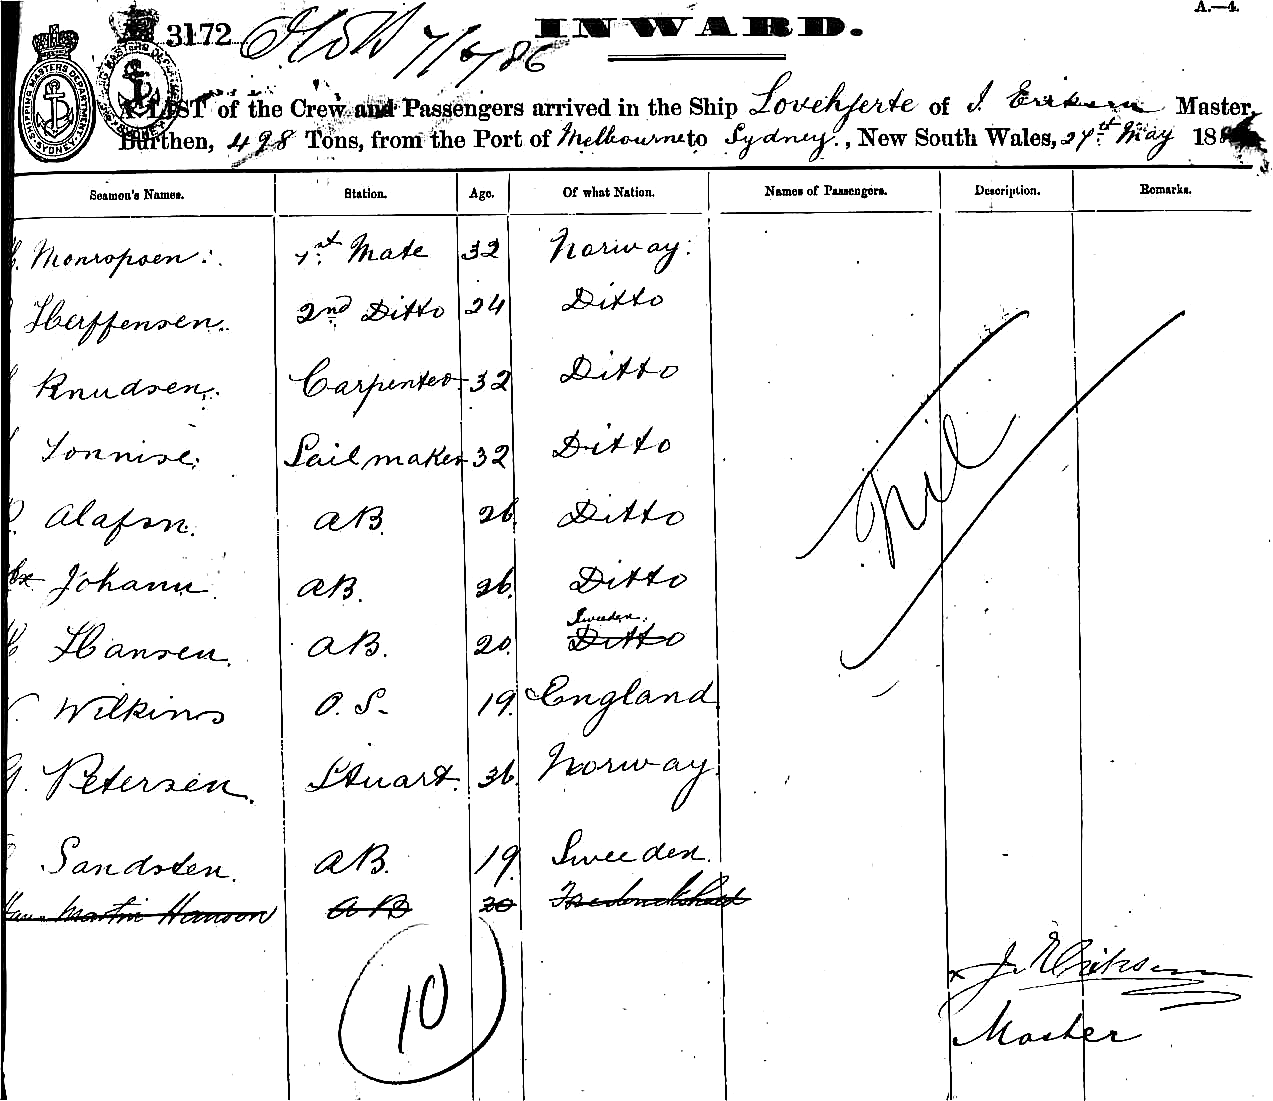 A.—4.
INWARD.
3172 7/6/86
A LIST of the Crew and Passengers arrived in the Ship Lovehjerte of J. Eriksen Master,
Burthen, 498 Tons, from the Port of Melbourne to Sydney., New South Wales, 27th May 188
Seamen's Names. Station. Age. Of what Nation. Names of Passengers. Description. Remarks.
Monropsen 1st Mate 32 Norway
Herffensen 2nd Ditto 24 Ditto
Knudsen Carpenter 32 Ditto
Tonnise Sailmaker 32 Ditto
Alafsn AB. 26 Ditto
Johann AB. 26 Ditto
Sweden.
H Hansen. AB. 20. Ditto
Wilkins O.S. 19. England
Petersen. Stuart. 36. Norway.
Sandsten. AB. 19. Sweeden.
Martin Hanson AB 20
Nil
10
J. Eriksen
Master
SHIPPING MASTERS DEPARTMENT SYDNEY